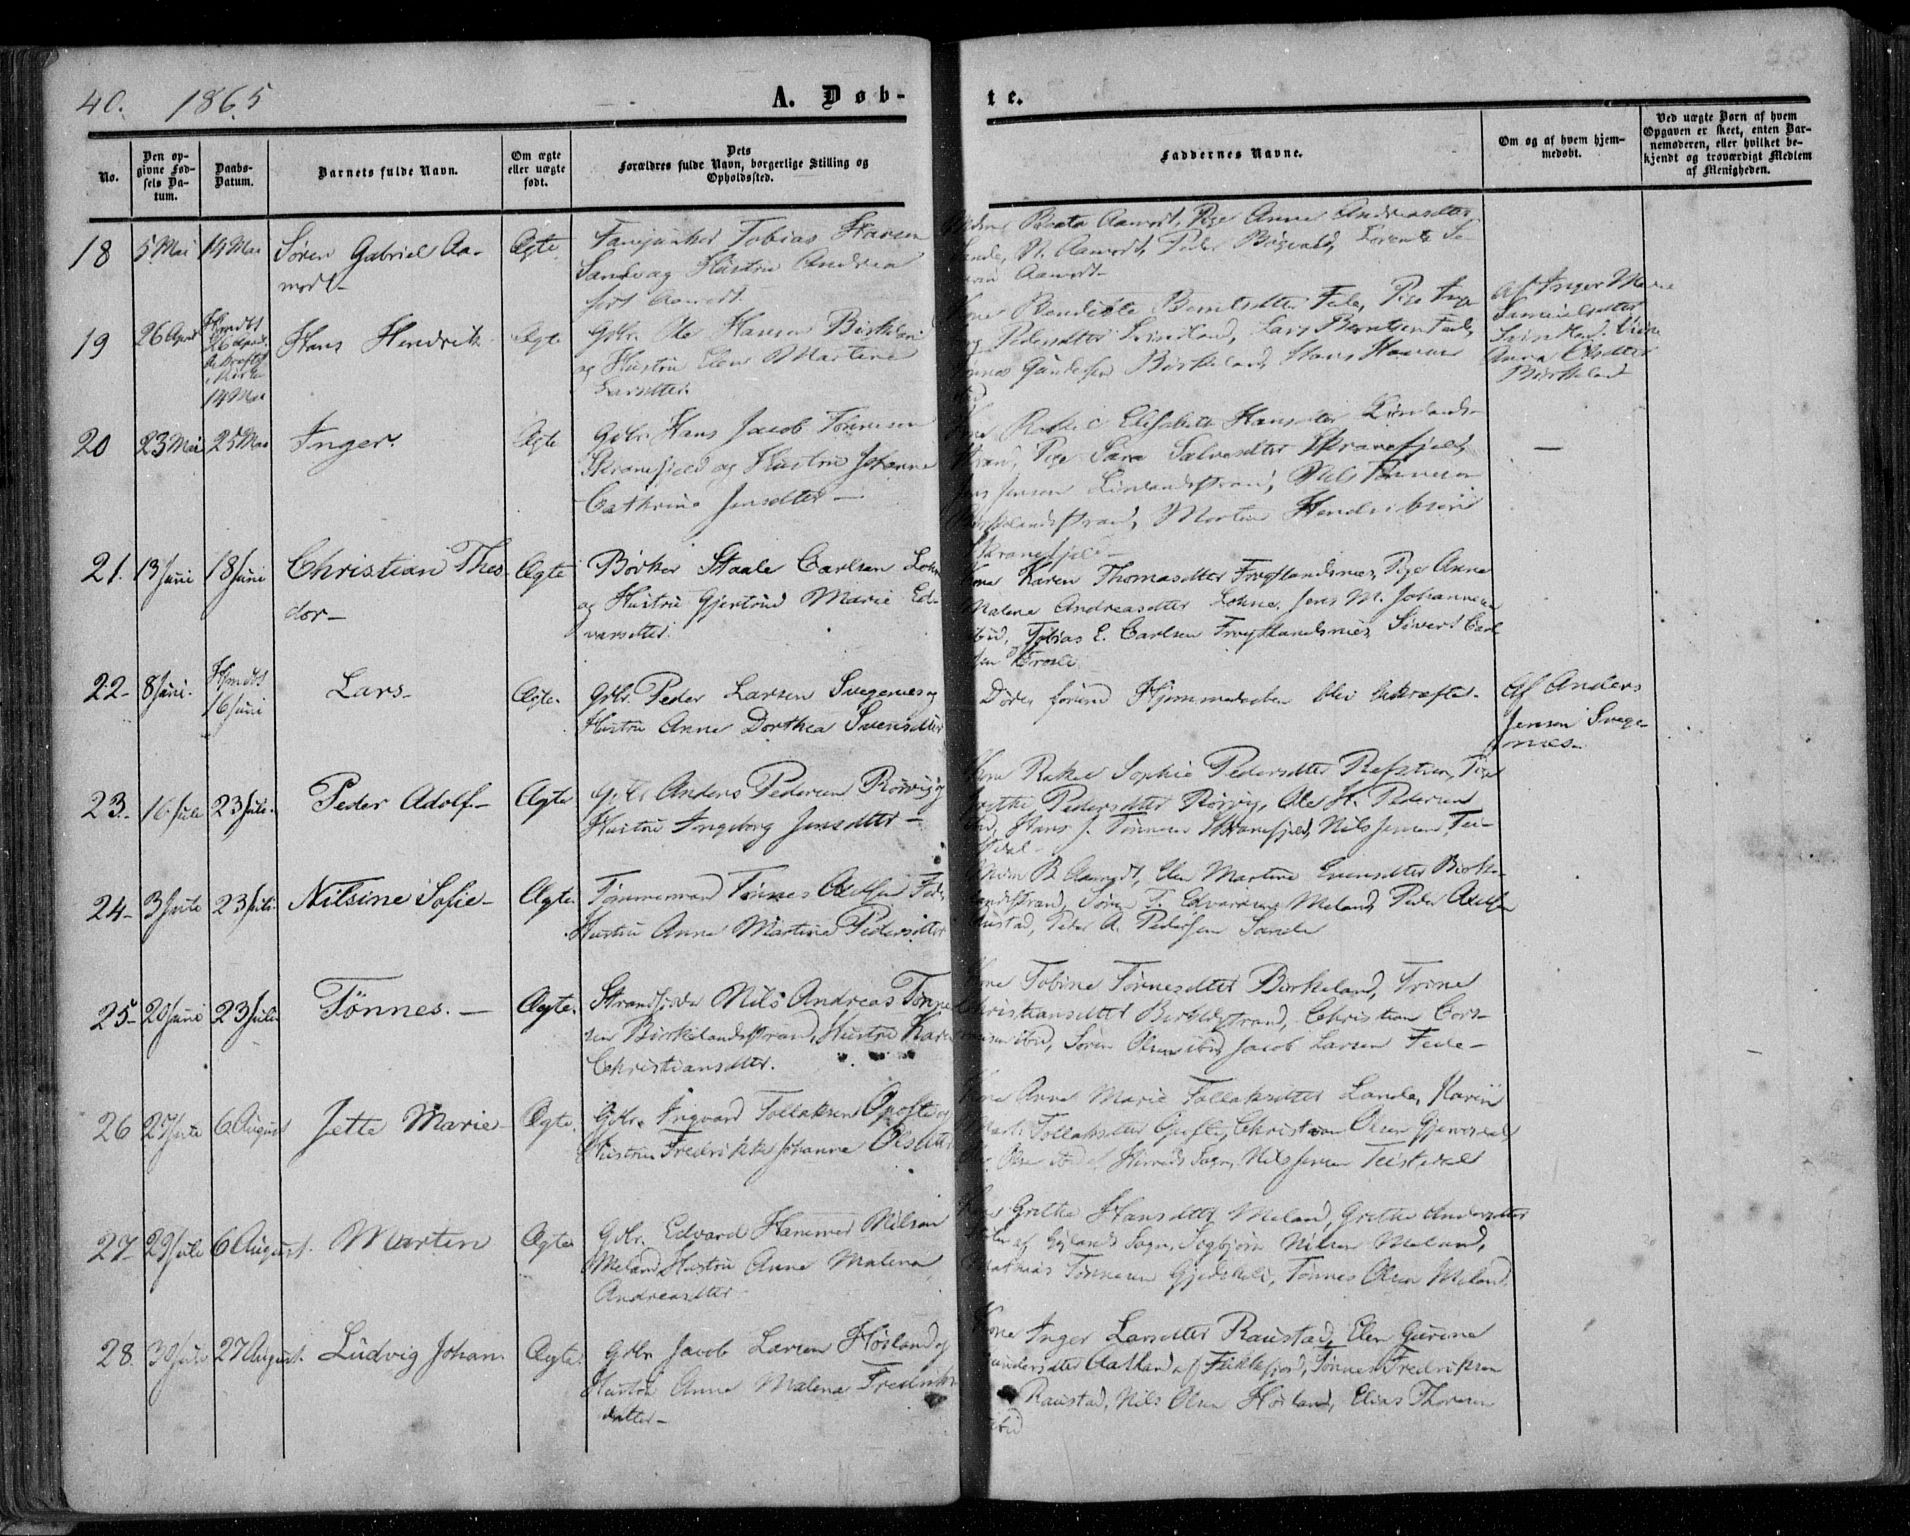 40. 1865
A. Døb-
te.
No.
Den op-
givne Fød-
sels Da-
tum.
Daabs-
Datum.
Barnets fulde Navn.
Om ægte
eller uægte
født.
Dets
Forældres fulde Navn, borgerlige Stilling og
Opholdssted.
Faddernes Navne.
Om og af hvem hjem-
medøbt.
Ved uægte Børn af hvem
Opgaven er skeet, enten Bar-
nemoderen, eller hvilket be-
kjendt og troværdigt Medlem
af Menigheden.
18 5 Mai 14 Mai Søren Gabriel Aa-
modt-
Ægte. Fanejunker Tobias Hansen
Sande og Hustru Andrea
født Aamodt.
Beata Aamodt, Pige Anne Andreasdtter
Sande, N. Aamodt, Peder
Aamodt-
19 26 April Hjmdøbt
26 April.
Bekræftet
i Kirke
14 Mai
Hans Hendrik. Ægte Gdbr. Ole Hansen Birkeland
og Hustru Elen Martine
Larsdtter.
Kone Bendikte Berntsdtter Fede, Pige Inge
Pedersdtter Lars Berntsen Fede,
Tønnes Gundersen Birkeland, Hans Hansen
Af Inger Marie
Samuelsdtter
Anna Olsdtter
Birkeland
20 23 Mai 25 Mai Inger. Ægte Gdbr. Hans Jacob Tønnesen
Skranefjeld og Hustru Johanne
Cathrine Jensdtter-
Kone Rakel Elisabeth Hansdtter
Pige Sara Salvesdtter Skranefjeld,
Jens Jensen Nils Tønnesen
Birkelandsstrand, Morten Hendriksen
Skranefjeld-
—
21. 13 Juni 18 Juni Christian Theo
dor-
Ægte Bødker Staale Carlsen Lohne
og Hustru Gjertrud Marie Ed-
vardsdtter.
Kone Karen Thomasdtter Frøytlandsnæs, Pige Anne
Malene Andreasdtter Lohne, Jens M. Johannesen
ibid, Tobias E. Carlsen Frøytlandsnæs, Sivert Carl
sen
22- 8 Juni. Hjmdøbt
16 Juni
Lars- Ægte- Gdbr. Peder Larsen Svegenes og
Hustru Anne Dorthea Svensdtter
Døde, forend Hjemmedaaben blev bekræftet.
Af Anders
Jensen Svege-
næs-
23. 16 Juli 23 Juli. Peder Adolf- Ægte Gdbr Anders Pedersen Rørvig og
Hustru Ingeborg Jensdtter-
Kone Rakel Sophie Pedersdtter Pige
Grethe Pedersdtter Rørvig, Ole H. Pedersen
ibid, Hans J. Tønnesen Skranefjeld, Nils Jensen Tei-
stedal
24- 3 Juli 23 Juli. Nilsine Sofie- Ægte. Tømmermand Tønnes Axelsen Fede,
Hustru Anne Martine Pedersdtter
B. Aamodt, Elen Martine Evensdtter Birke-
landsstrand, Søren T. Edvardsen Meland, Peder Axelsen
Raustad, Peder A. Pedersen Sande
25- 20 Juni 23 Juli Tønnes.- Ægte. Strandsidder Nils Andreas Tønne-
sen Birkelandsstrand, Hustru Karen
Christiansdtter.
Kone Tobine Tønnesdtter Birkeland, Trine
Christiansdtter Birkeldstrand, Christian Cor-
neliusen ibid, Søren Olsen ibid, Jacob Larsen Fede-
26 27 Juli 6 August Jette Marie- Ægte. Gdbr. Ingvard Tollaksen Opofte og
Hustru Fredrikke Johanne Olsdtter
Kone Anne Marie Tollaksdtter Lande, Karin
Tollaksdtter Opofte, Christian Olsen
Olsen ibid af Sogn, Nils Jensen Teistedal
27- 29 Juli 6 August. Martin Ægte Gdbr. Edvard Hammer Nilsen
Meland, Hustru Anne Malena
Andreasdtter-
Kone Grethe Hansdtter Meland, Grethe Andersdtter
af Gylands Sogn, Torbjørn Nilsen Meland,
Mathias Tønnesen Tønnes Olsen Meland.
28. 30 Juli 27 August. Ludvig Johan. Ægte. Gdbr. Jacob Larsen Høiland og
Hustru Anne Malena Fredriks-
datter-
Kone Inger Larsdtter Raustad, Elen Gurine
Gundersdtter Aatland af Flekkefjord, Tønnes Fredriksen
Raustad, Nils Olsen Høiland, Elias Thorsen
ibid